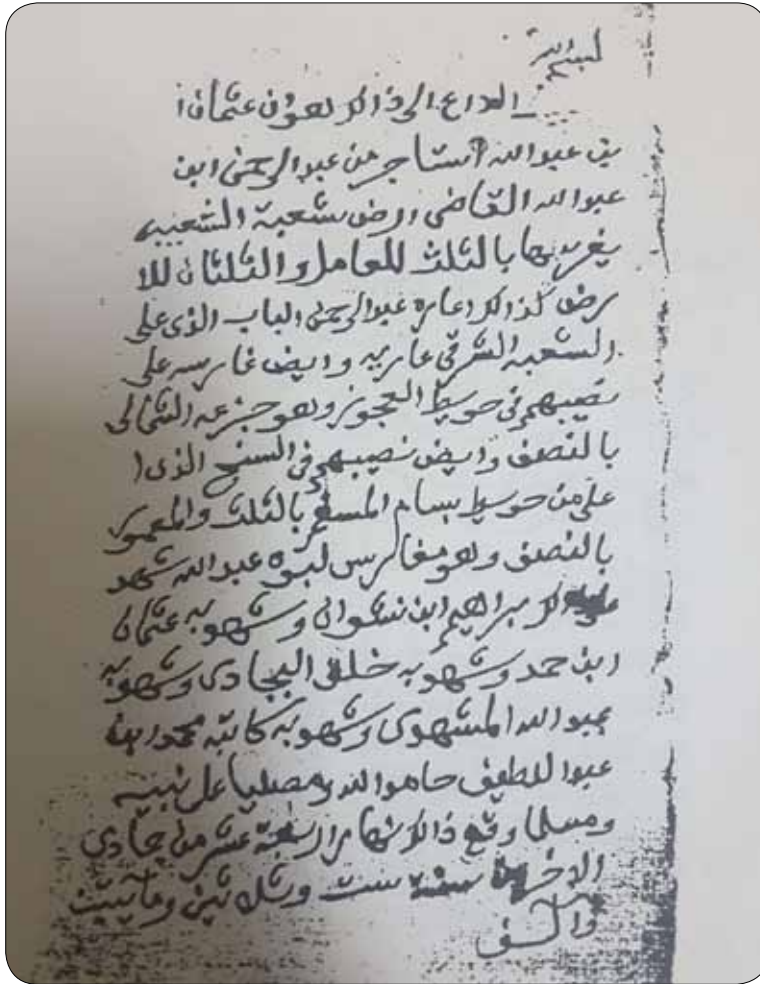 لبسم الله
الداع الى ذالك هو ان عثمان ا
بن عبدالله استاجر من عبدالرحمن ابن
عبدالله القاضي ارض شعبة الشعيبيه
يغرسها بالثلث للعامل والثلثان للا
رض كذالك اعاره عبدالرحمن الباب الذي على
الشعبه الشرقي عاريه وايض غارسه على
نصيبهم في حويط العجوز وهو جزعه الشمالي
بالنصف وايض نصيبهم في السنح الذي ا
على من حويط بسام المسقى بالثلث والمعمور
بالنصف وهو مغارس لبوه عبدالله شهد
على ذالك براهيم ابن نشوان وشهد به عثمان
ابن حمد وشهد به خلف البجادي وشهد به
عبدالله المشهوي وشهد به كاتبه محمد ابن
عبداللطيف حامدا لله ومصليا على نبيه
ومسلما وقع ذالك نهار اربعة عشر من جمادى
الاخر سنة ست وثلاثين ومايتين
والف